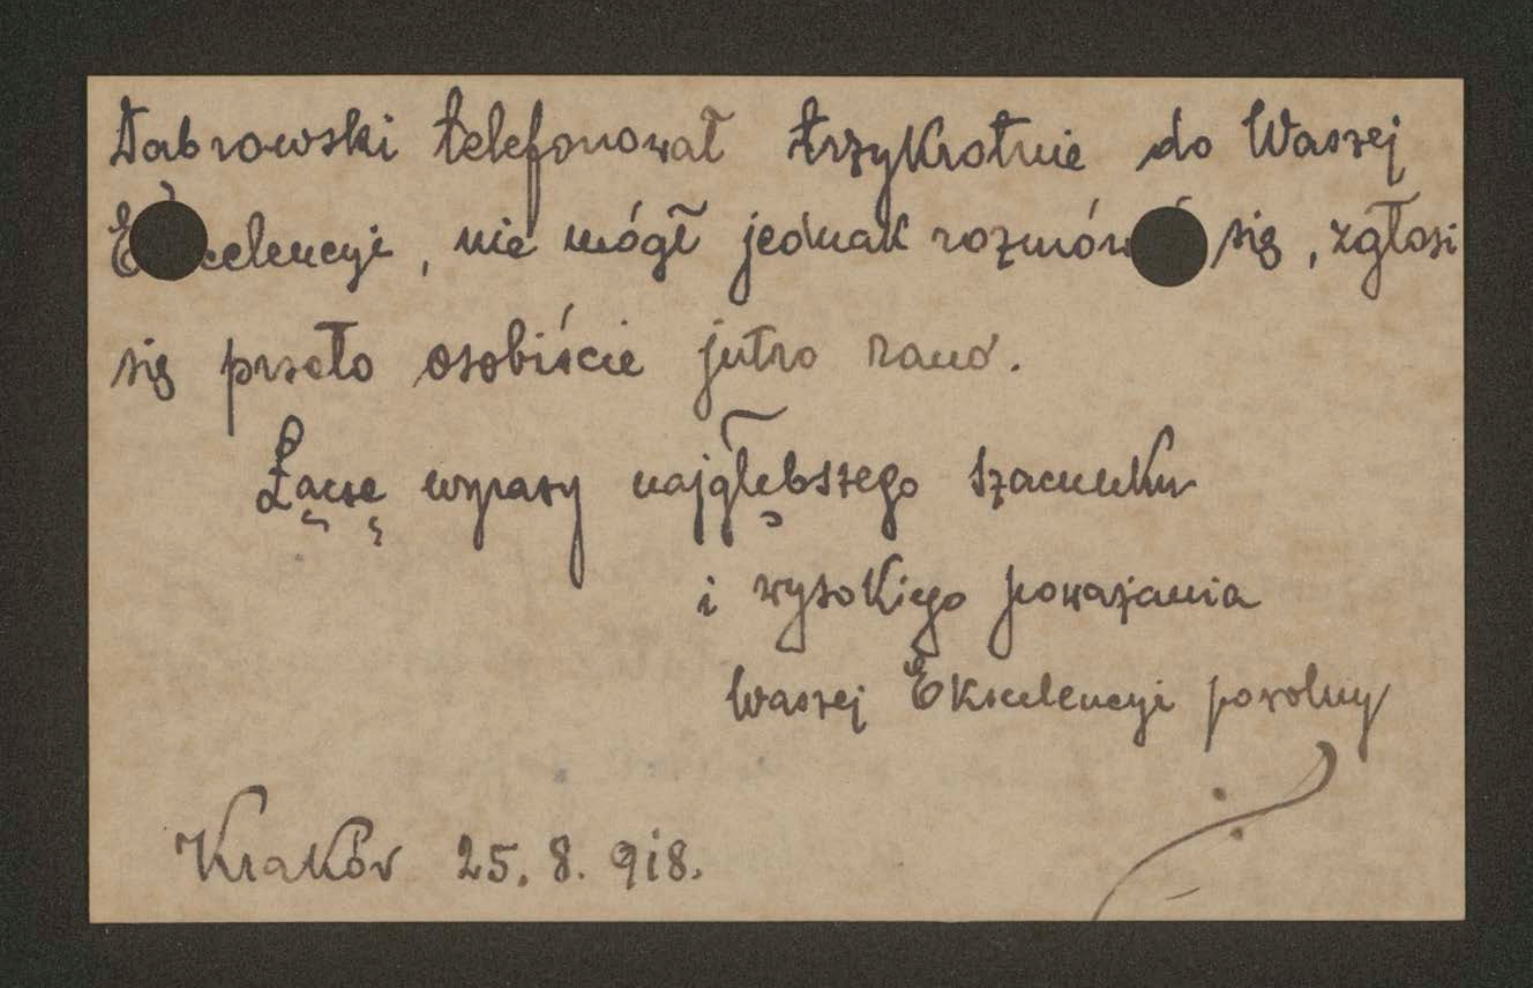 Dabrowski telefonował trzykrotnie do Waszej
Ekscelencyi, nie mógł jednak rozmówić się, zgłosi
się przeto osobiście jutro rano.
Łączę wyrazy najgłębszego szacunku
i wysokiego poważania
Waszej Ekscelencyi powolny
Kraków 25. 8. 918.